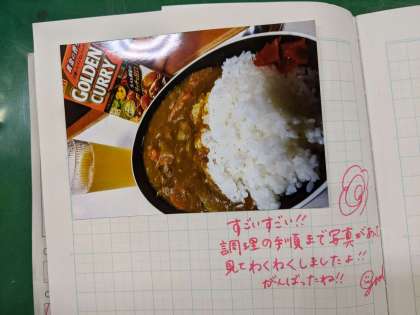 GOLDEN
CURRY
すごいすごい!!
調理の手順まで写真があり
見てわくわくしましたよ!!
がんばったね!!